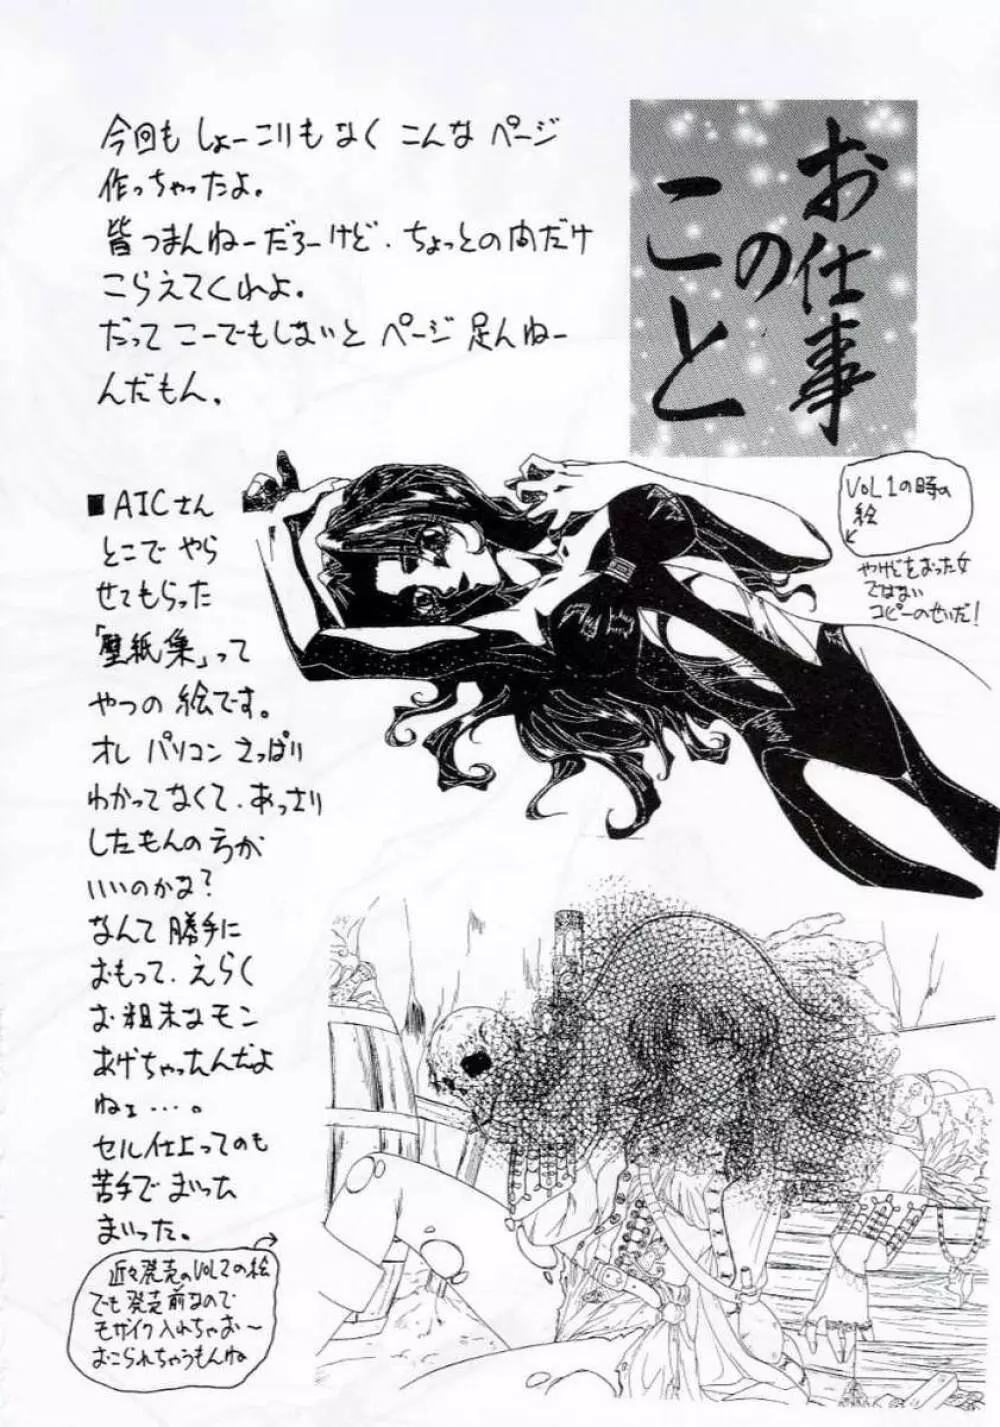 お仕事
の
こと
今回も しょーこりも なく こんな ページ
作っちゃったよ。
皆つまんねーだろーけど、ちょっとの間だけ
こらえてくれよ。
だって こーでもしないと ページ 足んねー
んだもん。
■AICさん
とこで やら
せてもらった
「壁紙集」って
やつの 絵です。
オレ パソコン さっぱり
わかってなくて、あっさり
したもんの方が
いいのかな?
なんて 勝手に
おもって、えらく
お粗末なモン
あげちゃったんだよ
ねェ…。
セル仕上ってのも
苦手で まいった
まいった。
VOL 1の時の
絵
やけどをおった女
ではない
コピーのせいだ!
近々発売のVOL2の絵
でも発売前なので
モザイク入れちゃお〜
おこられちゃうもんね